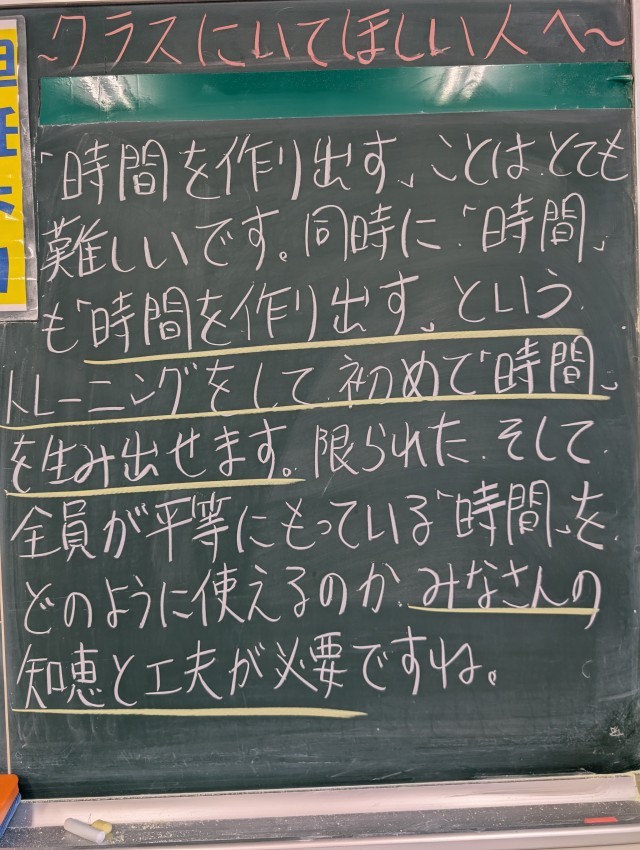 ～クラスにいてほしい人へ～
「時間を作り出す」ことは、とても
難しいです。同時に、「時間」
も「時間を作り出す」という
トレーニングをして、初めて「時間」
を生み出せます。限られた、そして、
全員が平等にもっている「時間」を
どのように使えるのか、みなさんの
知恵と工夫が必要ですね。